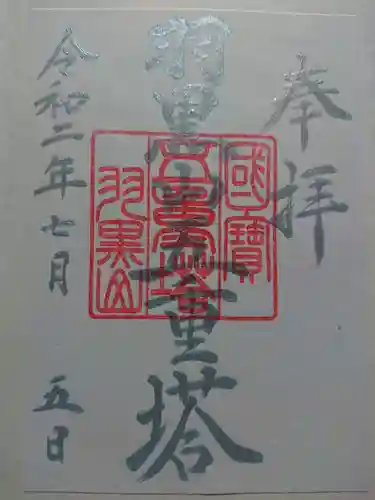 奉拝
羽黒山五重塔
令和二年七月五日
國寶
五重塔
羽黒山